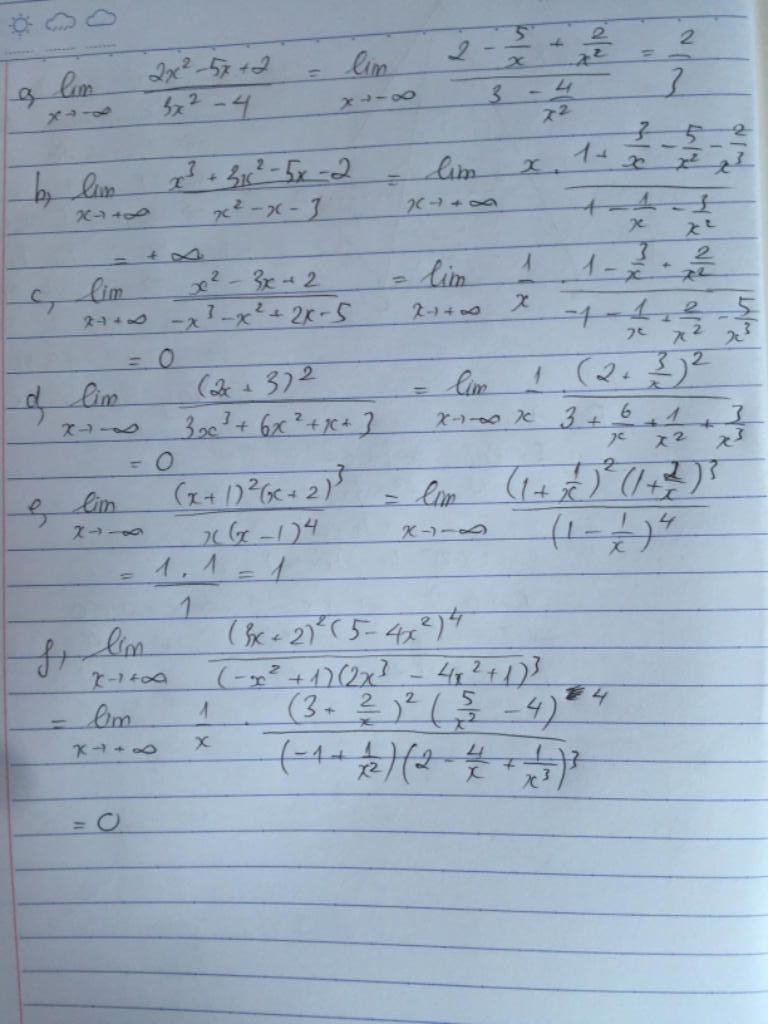 a, lim x→-∞ (2x² - 5x + 2)/(3x² - 4) = lim x→-∞ (2 - 5/x + 2/x²)/(3 - 4/x²) = 2/3
b, lim x→+∞ (x³ + 3x² - 5x - 2)/(x² - x - 3) = lim x→+∞ x . (1 + 3/x - 5/x² - 2/x³)/(1 - 1/x - 3/x²)
= +∞
c, lim x→+∞ (x² - 3x + 2)/(-x³ - x² + 2x - 5) = lim x→+∞ 1/x . (1 - 3/x + 2/x²)/(-1 - 1/x + 2/x² - 5/x³)
= 0
d, lim x→-∞ (2x + 3)²/(3x³ + 6x² + x + 3) = lim x→-∞ 1/x . (2 + 3/x)²/(3 + 6/x + 1/x² + 3/x³)
= 0
e, lim x→-∞ (x + 1)²(x + 2)³/(x(x - 1)⁴) = lim x→-∞ (1 + 1/x)²(1 + 2/x)³/(1 - 1/x)⁴
= (1 . 1)/1 = 1
f, lim x→+∞ (3x + 2)²(5 - 4x²)⁴/((-x² + 1)(2x³ - 4x² + 1)³)
= lim x→+∞ 1/x . (3 + 2/x)²(5/x² - 4)⁴/((-1 + 1/x²)(2 - 4/x + 1/x³)³)
= 0